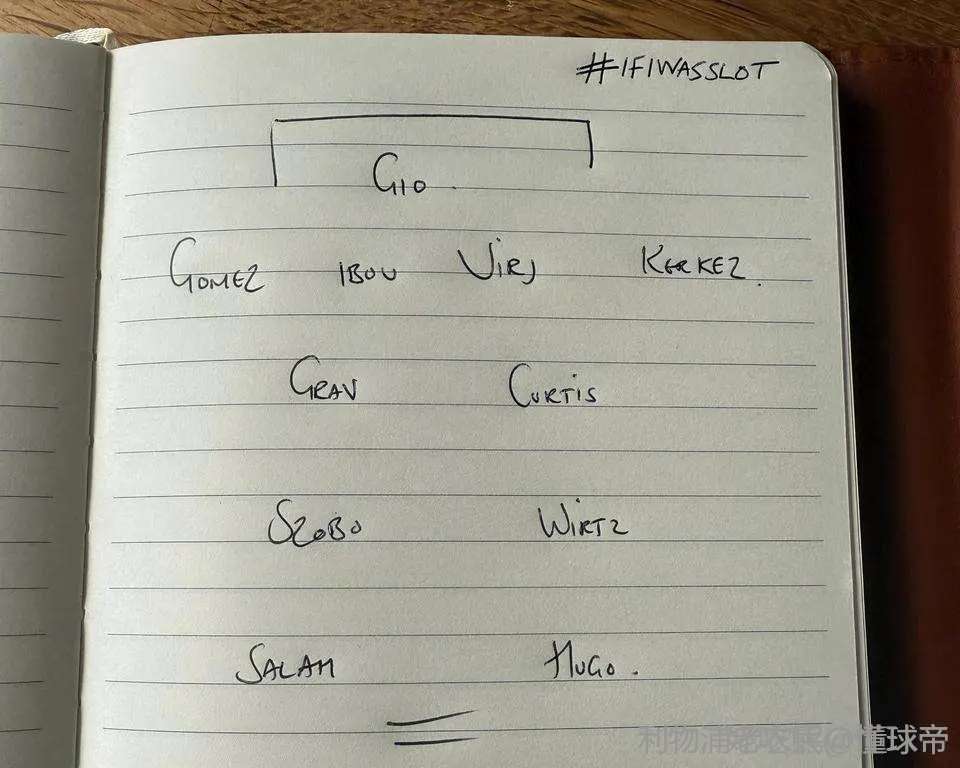 #IFIWASSLOT
GIO
GOMEZ IBOU VIRJ KERKEZ.
GRAV CURTIS
SZOBO WIRTZ
SALAH HUGO.
@懂球帝